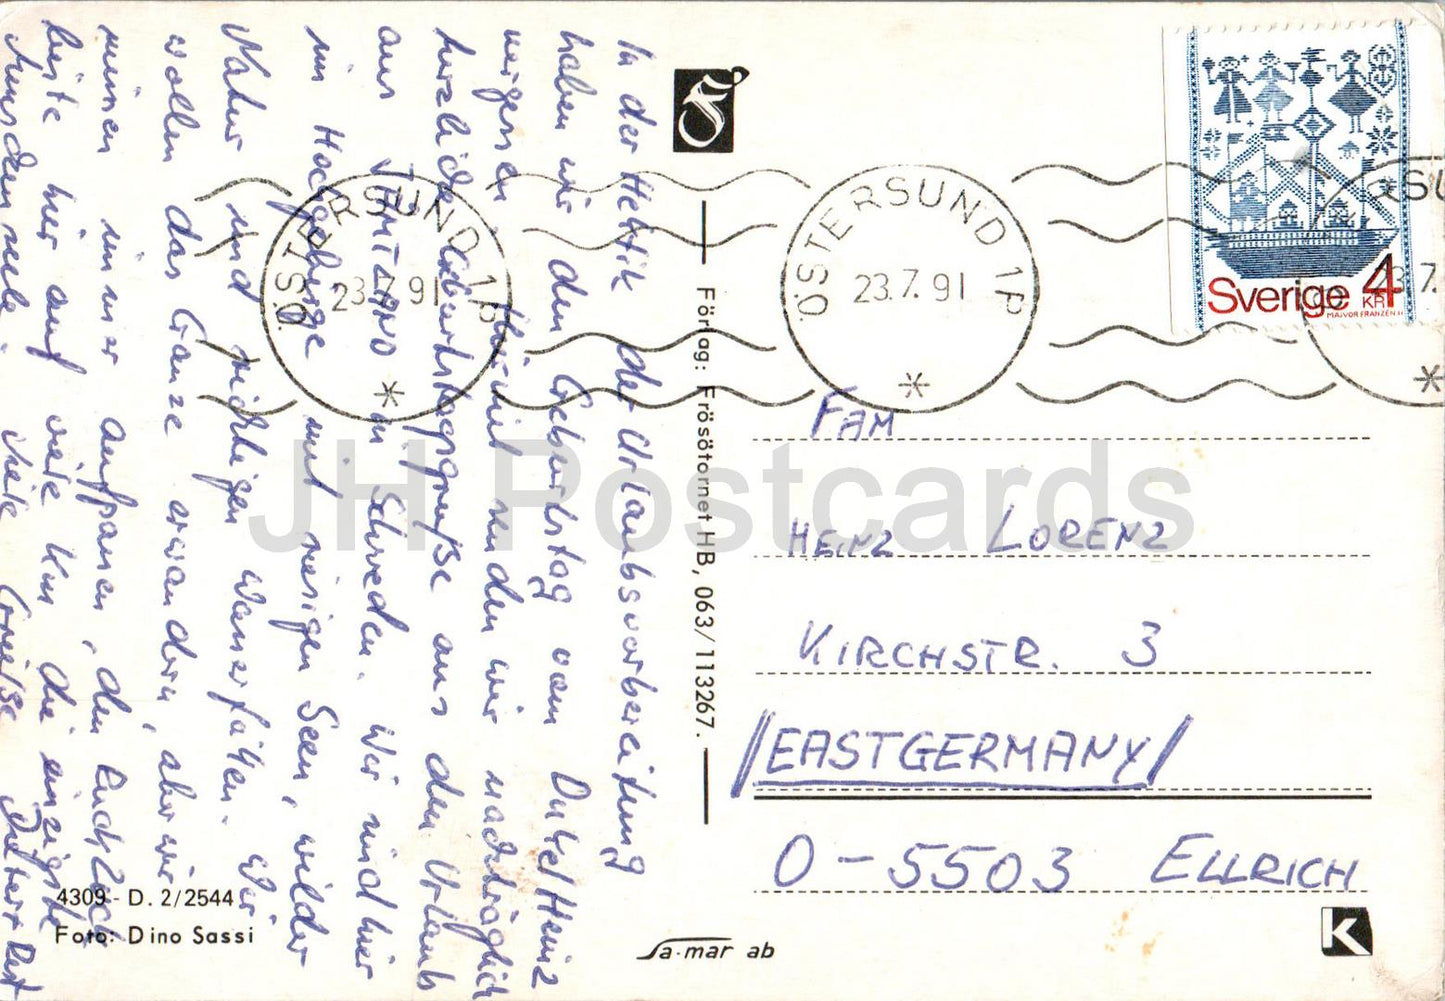 In der Hektik der Urlaubsvorbereitung
haben wir den Geburtstag von Onkel Heinz
vergessen. Hiermit senden wir nachträglich
herzliche Geburtstagsgrüße aus dem Urlaub
aus JÄMTLAND in Schweden. Wir sind hier
im Hochgebirge mit riesigen Seen, wilder
Natur und richtigen Wasserfällen. Wir
wollen das Ganze erwandern, aber wir
müssen immer aufpassen, den Rucksack
hier auf viele km die einzigsten
Menschenseele. Viele Grüße
4309 - D. 2/2544
Foto: Dino Sassi
Förlag: Frösötornet HB, 063/113267.
Sa-mar ab
ÖSTERSUND 1P
23.7.91
ÖSTERSUND 1P
23.7.91
SU
23.7.
Sverige 4 KR
MAJVOR FRANZÉN
FAM
HEINZ LORENZ
KIRCHSTR. 3
/EASTGERMANY/
O-5503 ELLRICH
K
JH Postcards